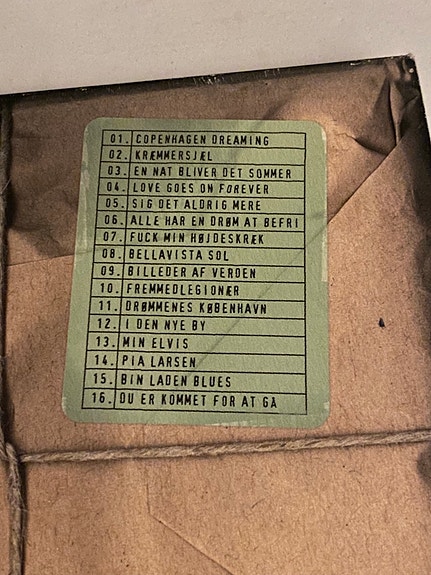 01. COPENHAGEN DREAMING
02. KRÆMMERSJÆL
03. EN NAT BLIVER DET SOMMER
04. LOVE GOES ON FOREVER
05. SIG DET ALDRIG MERE
06. ALLE HAR EN DRØM AT BEFRI
07. FUCK MIN HØJDESKRÆK
08. BELLAVISTA SOL
09. BILLEDER AF VERDEN
10. FREMMEDLEGIONÆR
11. DRØMMENES KØBENHAVN
12. I DEN NYE BY
13. MIN ELVIS
14. PIA LARSEN
15. BIN LADEN BLUES
16. DU ER KOMMET FOR AT GÅ